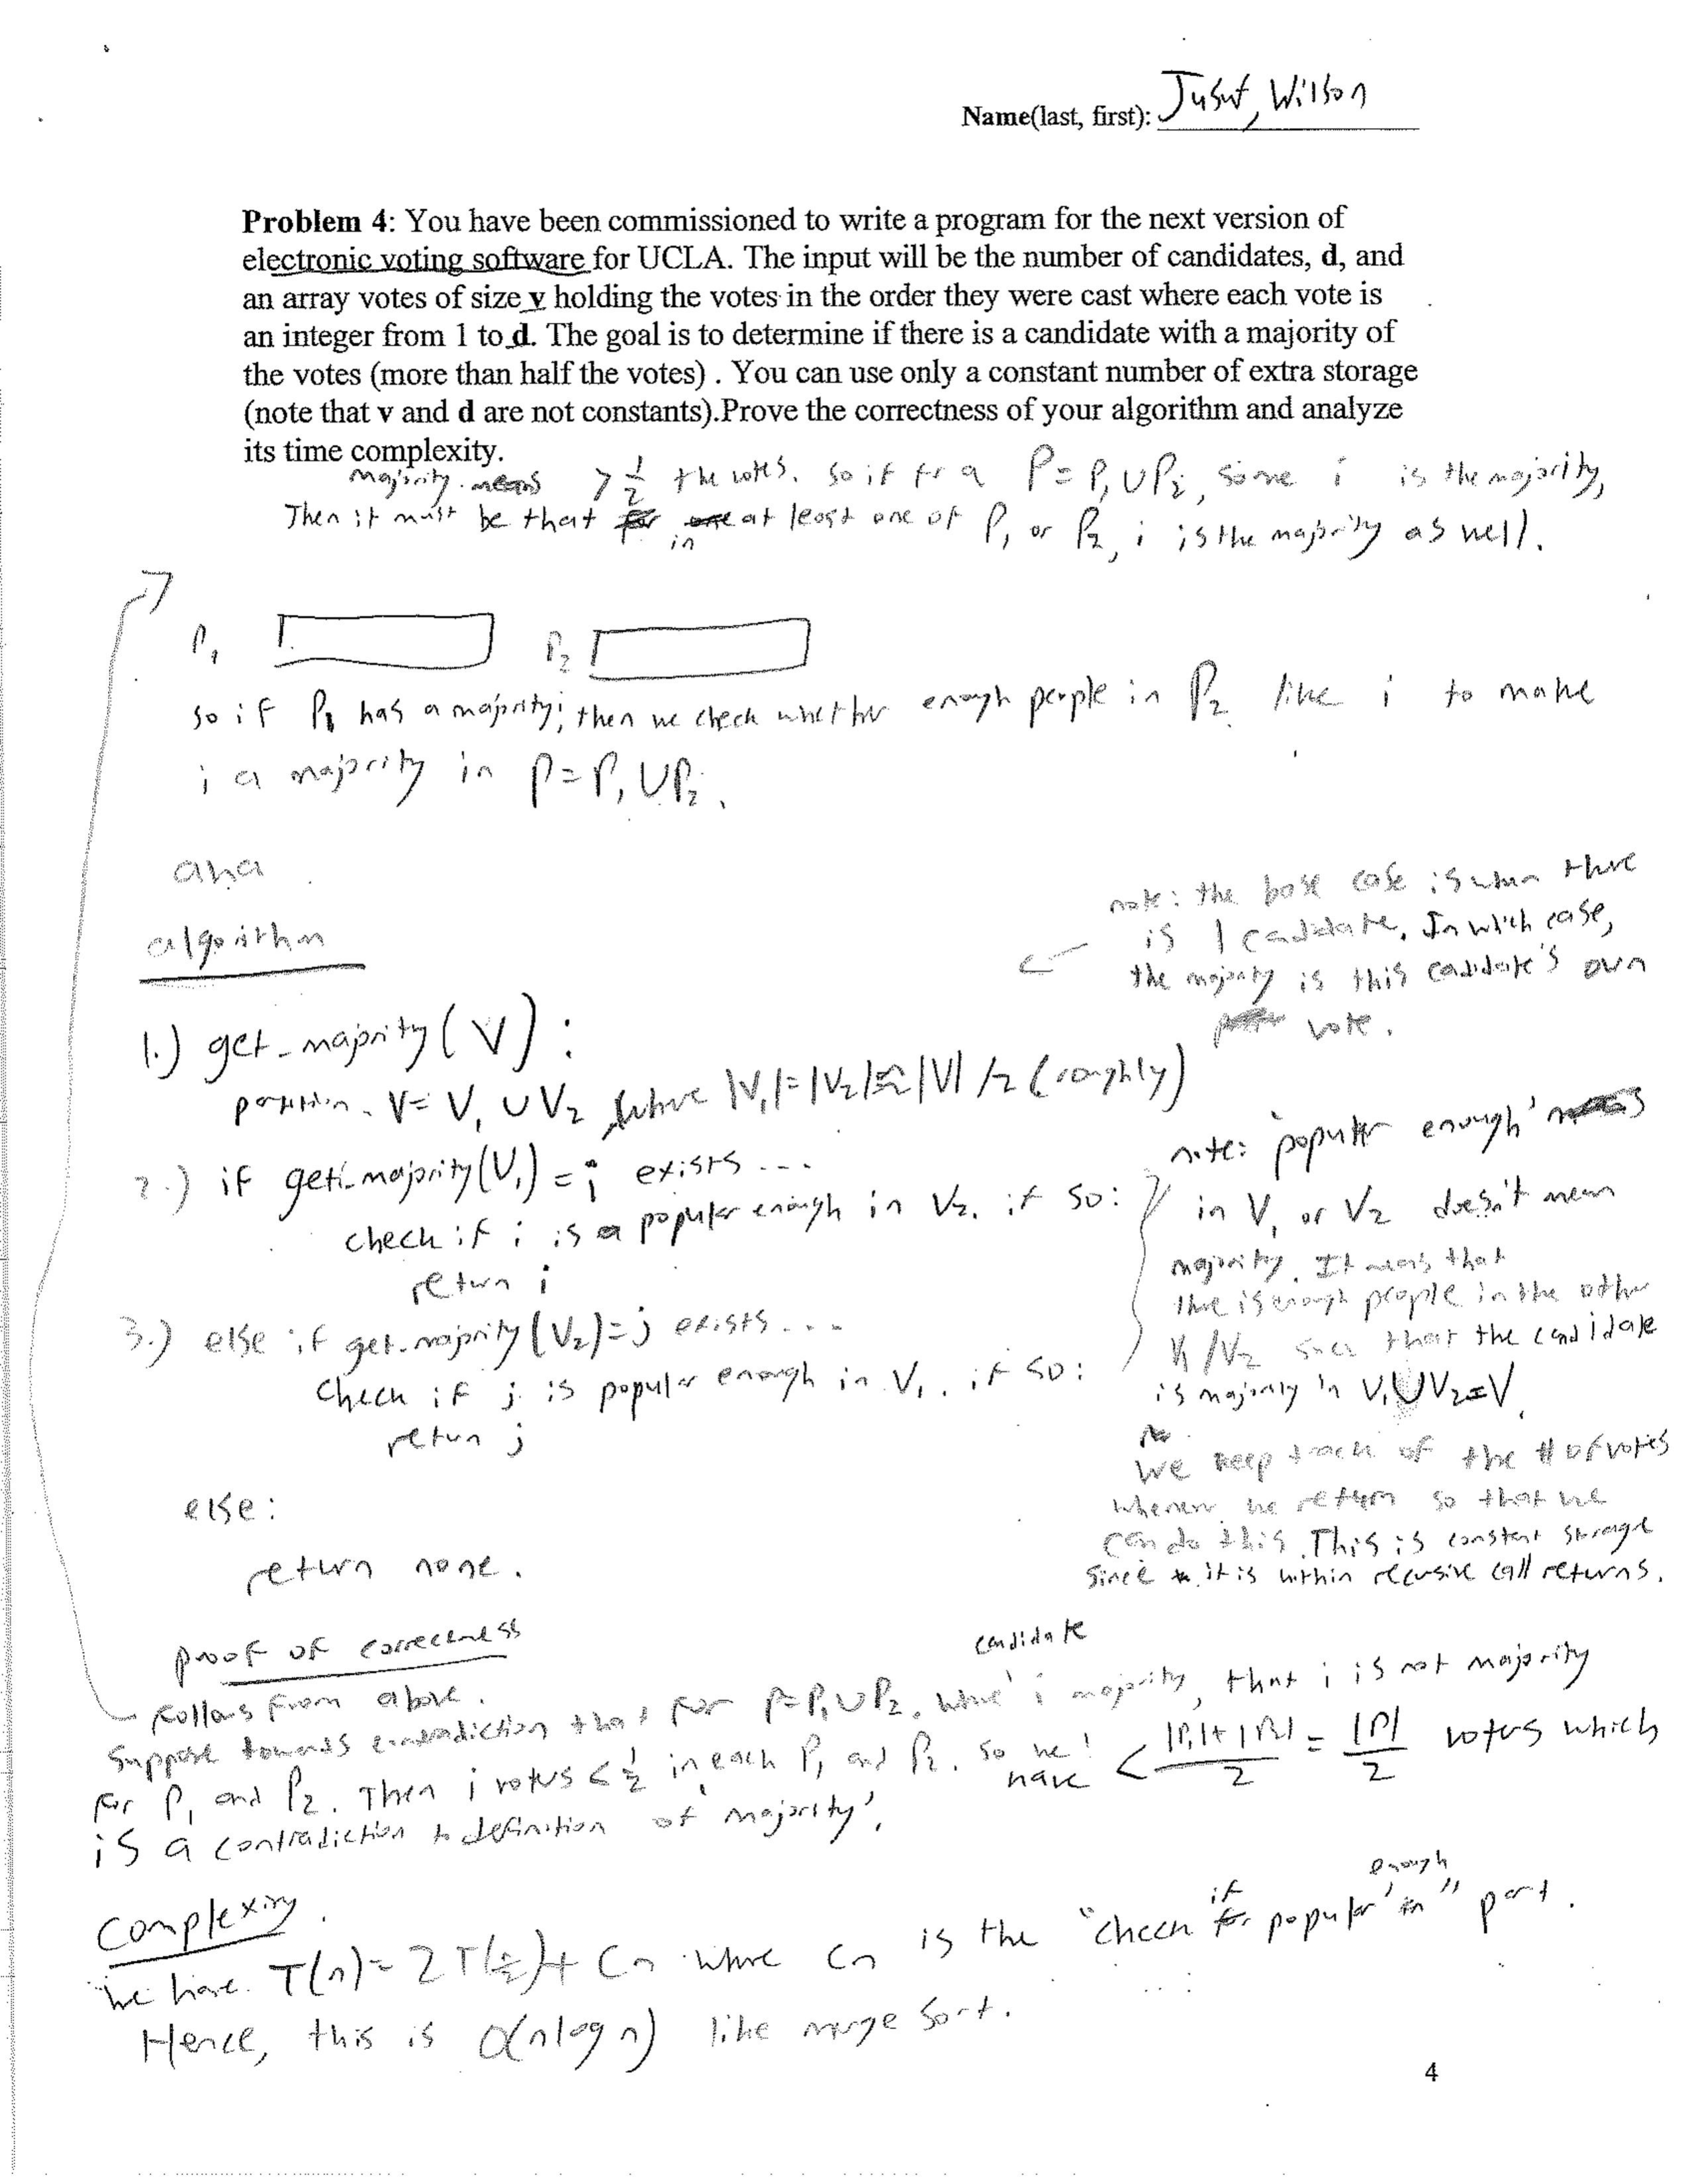 Name(last, first): Jusuf, Wilson
Problem 4: You have been commissioned to write a program for the next version of
electronic voting software for UCLA. The input will be the number of candidates, d, and
an array votes of size v holding the votes in the order they were cast where each vote is
an integer from 1 to d. The goal is to determine if there is a candidate with a majority of
the votes (more than half the votes) . You can use only a constant number of extra storage
(note that v and d are not constants).Prove the correctness of your algorithm and analyze
its time complexity.
majority means > 1/2 the votes. So if for a P = P₁ ∪ P₂, some i is the majority,
Then it must be that in at least one of P₁ or P₂, i is the majority as well.
P₁ P₂
so if P₁ has a majority i, then we check whether enough people in P₂ like i to make
i a majority in P = P₁ ∪ P₂.
algorithm
note: the base case is when there
is 1 candidate. In which case,
the majority is this cadidate's own
vote.
1.) get_majority(V):
partition V = V₁ ∪ V₂ where |V₁| = |V₂| ≈ |V| /2 (roughly)
2.) if get_majority(V₁) = i exists ...
check if i is popular enough in V₂. if so:
return i
3.) else if get_majority(V₂) = j exists ...
check if j is popular enough in V₁. if so:
return j
else:
return none.
note: 'popular enough'
in V₁ or V₂ doesn't mean
majority. It means that
there is enough people in the other
V₁/V₂ such that the candidate
is majority in V₁ ∪ V₂ = V.
We keep track of the # of votes
whenever we return so that we
can do this. This is constant storage
since it is within recursive call returns.
proof of correctness
follows from above.
Suppose towards contradiction that for P = P₁ ∪ P₂, where candidate i majority, that i is not majority
for P₁ and P₂. Then i votes < 1/2 in each P₁ and P₂. So we have < (|P₁| + |P₂|)/2 = |P|/2 votes which
is a contradiction to definition of 'majority'.
Complexity.
We have T(n) = 2T(n/2) + Cn where Cn is the "check if popular enough in" part.
Hence, this is O(n log n) like merge sort.
4